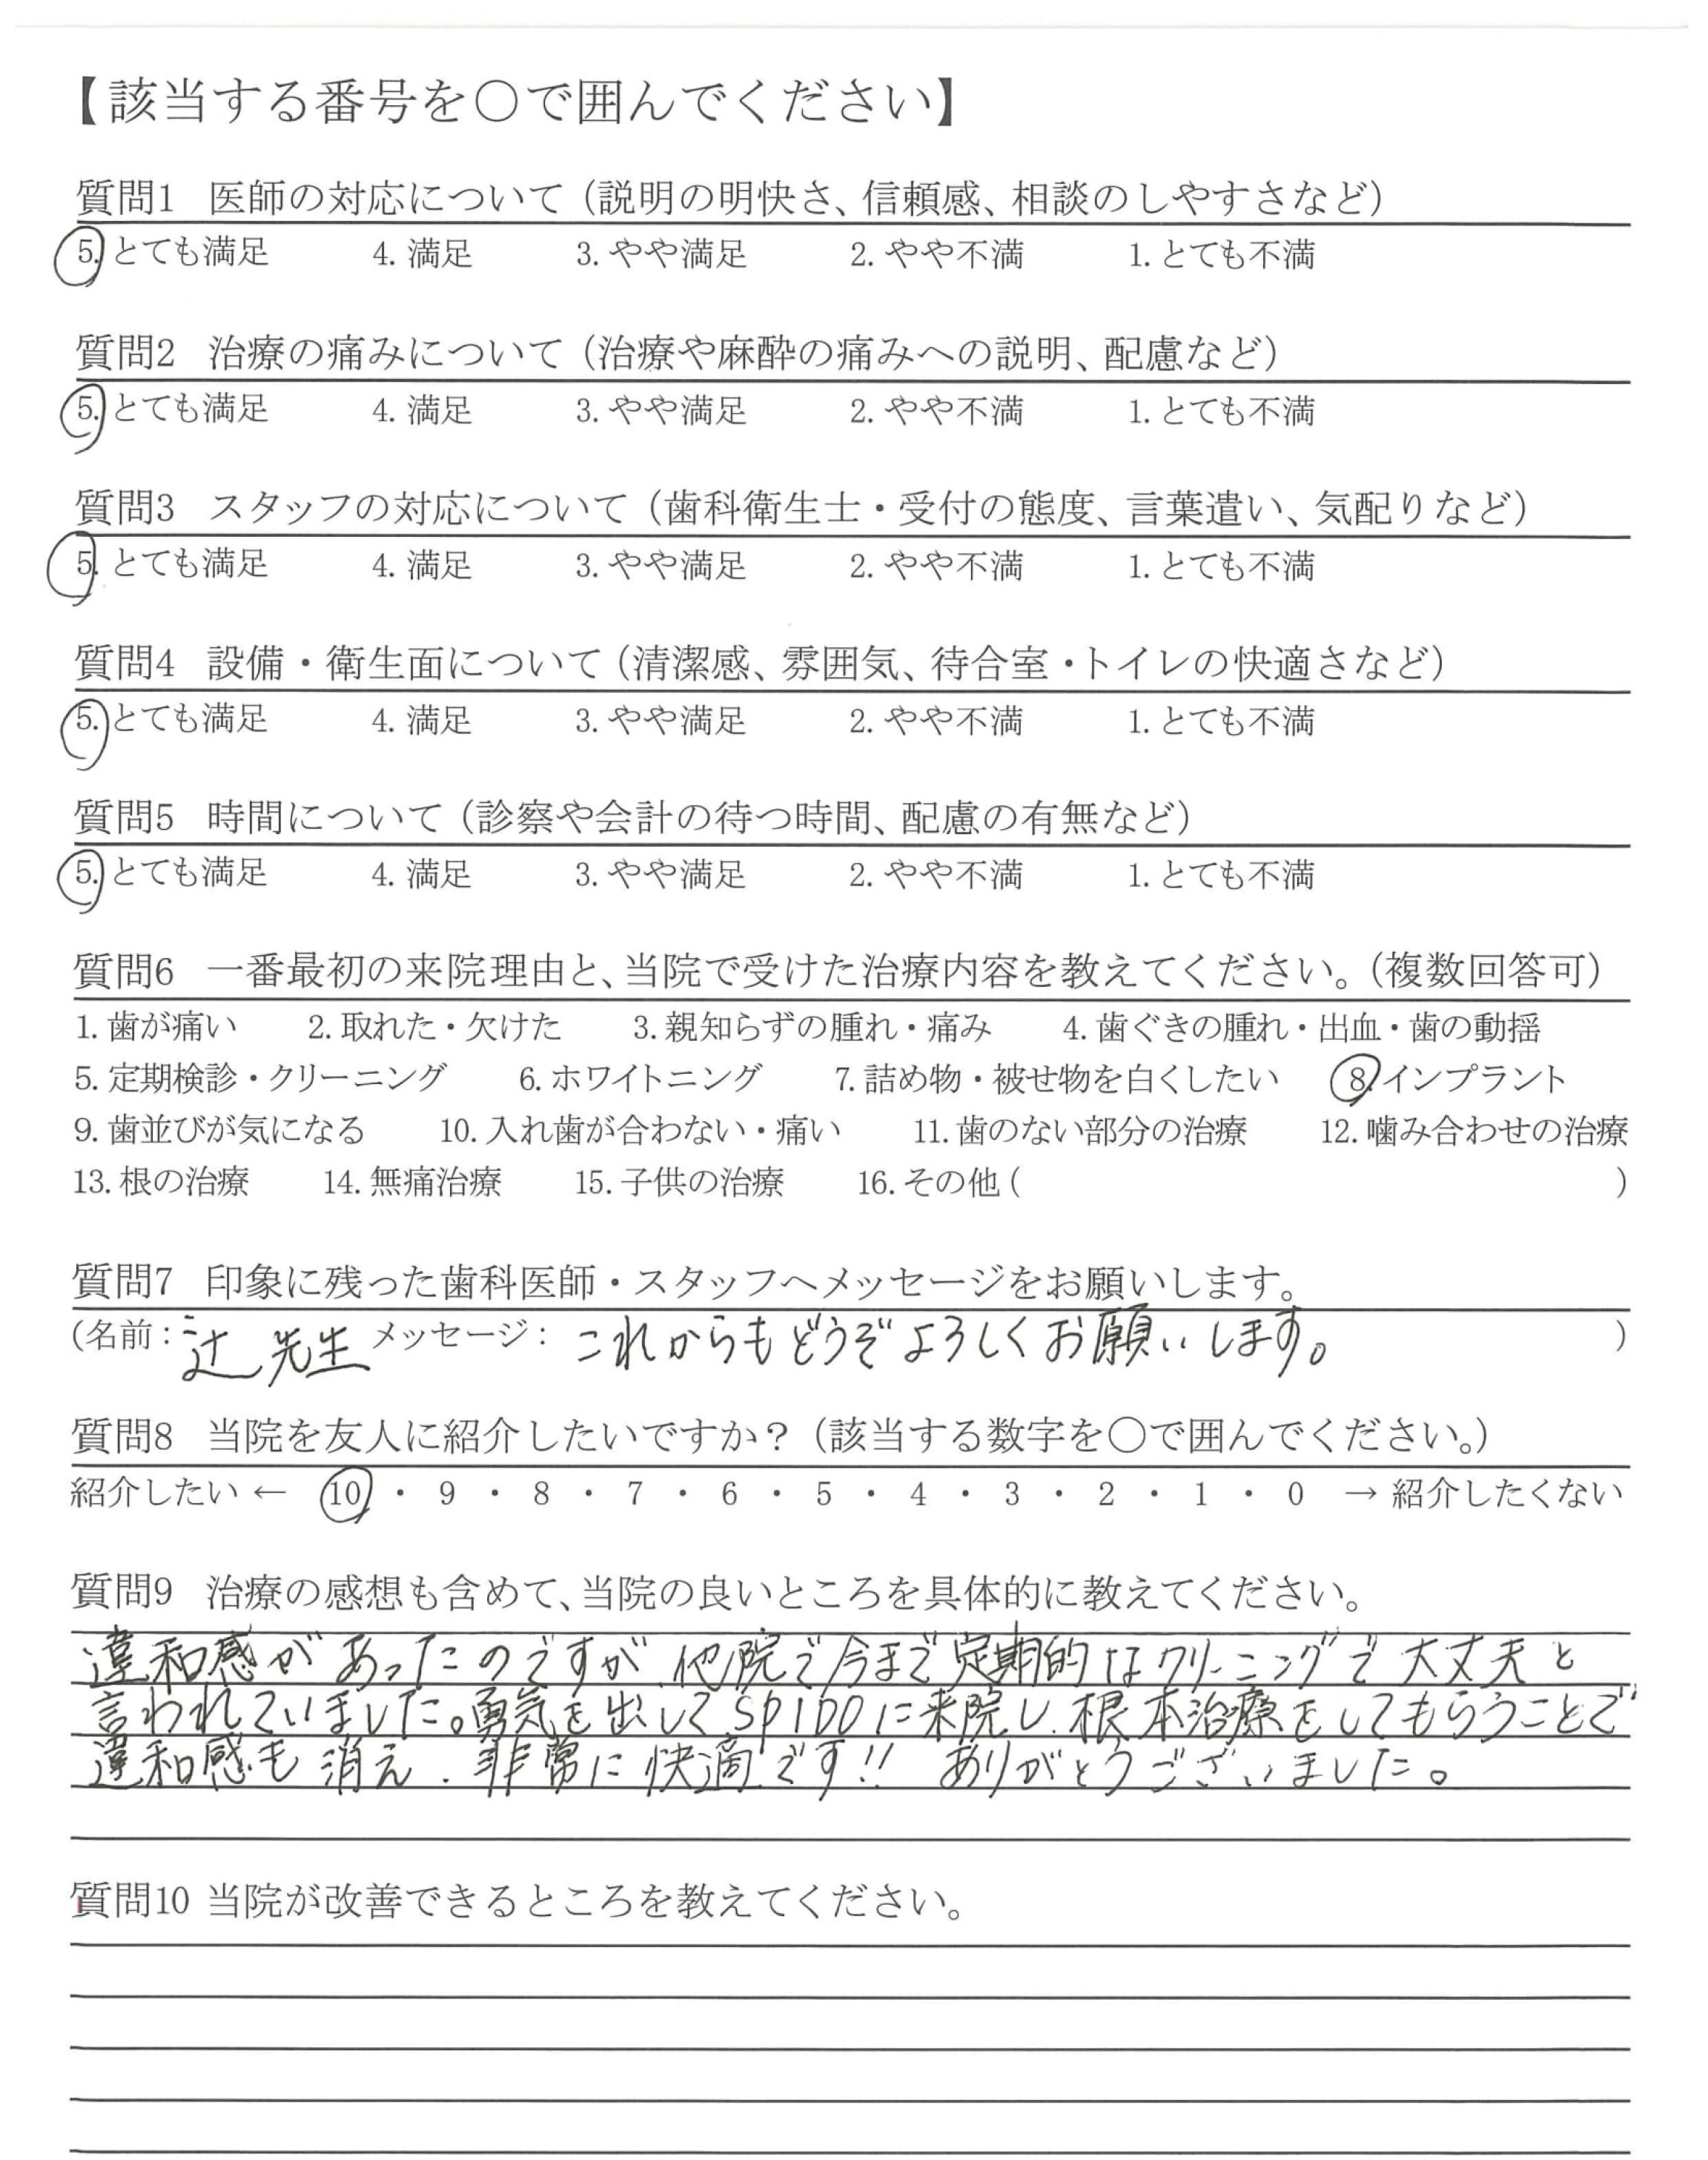 【該当する番号を○で囲んでください】
質問1 医師の対応について（説明の明快さ、信頼感、相談のしやすさなど）
5. とても満足 4. 満足 3. やや満足 2. やや不満 1. とても不満
質問2 治療の痛みについて（治療や麻酔の痛みへの説明、配慮など）
5. とても満足 4. 満足 3. やや満足 2. やや不満 1. とても不満
質問3 スタッフの対応について（歯科衛生士・受付の態度、言葉遣い、気配りなど）
5. とても満足 4. 満足 3. やや満足 2. やや不満 1. とても不満
質問4 設備・衛生面について（清潔感、雰囲気、待合室・トイレの快適さなど）
5. とても満足 4. 満足 3. やや満足 2. やや不満 1. とても不満
質問5 時間について（診察や会計の待つ時間、配慮の有無など）
5. とても満足 4. 満足 3. やや満足 2. やや不満 1. とても不満
質問6 一番最初の来院理由と、当院で受けた治療内容を教えてください。（複数回答可）
1. 歯が痛い 2. 取れた・欠けた 3. 親知らずの腫れ・痛み 4. 歯ぐきの腫れ・出血・歯の動揺
5. 定期検診・クリーニング 6. ホワイトニング 7. 詰め物・被せ物を白くしたい 8. インプラント
9. 歯並びが気になる 10. 入れ歯が合わない・痛い 11. 歯のない部分の治療 12. 噛み合わせの治療
13. 根の治療 14. 無痛治療 15. 子供の治療 16. その他（ ）
質問7 印象に残った歯科医師・スタッフへメッセージをお願いします。
（名前：辻 先生 メッセージ： これからもどうぞよろしくお願いします。 ）
質問8 当院を友人に紹介したいですか？（該当する数字を○で囲んでください。）
紹介したい ← 10 ・ 9 ・ 8 ・ 7 ・ 6 ・ 5 ・ 4 ・ 3 ・ 2 ・ 1 ・ 0 → 紹介したくない
質問9 治療の感想も含めて、当院の良いところを具体的に教えてください。
違和感があったのですが、他院で今まで定期的なクリーニングで大丈夫と
言われていました。勇気を出してSPIDOに来院し、根本治療をしてもらうことで
違和感も消え、非常に快適です!! ありがとうございました。
質問10 当院が改善できるところを教えてください。